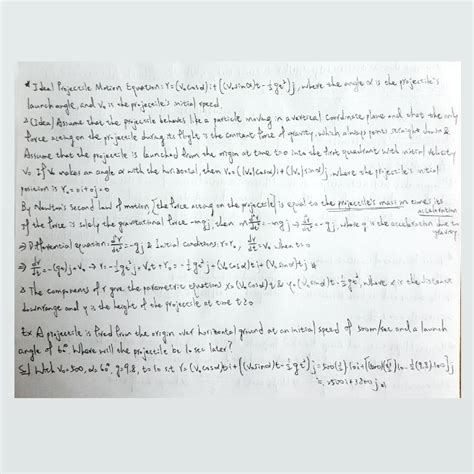 * Ideal Projectile Motion Equation: r=(V₀cosα)ti+((V₀sinα)t-½gt²)j, where the angle α is the projectile's
launch angle, and V₀ is the projectile's initial speed
(Idea) Assume that the projectile behaves like a particle moving in a vertical coordinate plane and that the only
force acting on the projectile during its flight is the constant force of gravity, which always points straight down &
Assume that the projectile is launched from the origin at time t=0 into the first quadrant with initial velocity
V₀ If V₀ makes an angle α with the horizontal, then V₀=(|V₀|cosα)i+(|V₀|sinα)j where the projectile's initial
position is r₀=0i+0j=0
By Newton's second law of motion, [the force acting on the projectile] is equal to the projectile's mass m times its acceleration
If the force is solely the gravitational force -mgj, then m d²r/dt²=-mgj → d²r/dt²=-gj, where g is the acceleration due to gravity
⇒ Differential equation: d²r/dt²=-gj & Initial conditions: r=r₀, dr/dt=V₀ when t=0
⇒ dr/dt=-(gt)j+V₀ → r=-½gt²j+V₀t+r₀=-½gt²j+(V₀cosα)ti+(V₀sinα)tj
The components of r give the parametric equations x=(V₀cosα)t & y=(V₀sinα)t-½gt², where x is the distance
downrange and y is the height of the projectile at time t≥0
Ex A projectile is fired from the origin over horizontal ground at an initial speed of 500m/sec and a launch
angle of 60° Where will the projectile be 10 sec later?
Sol With V₀=500, α=60°, g=9.8, t=10 s.t r=(V₀cosα)ti+((V₀sinα)t-½gt²)j=500(½)·10i+[(500)(√3/2)10-½(9.8)·100]j
≈2500i+3840j